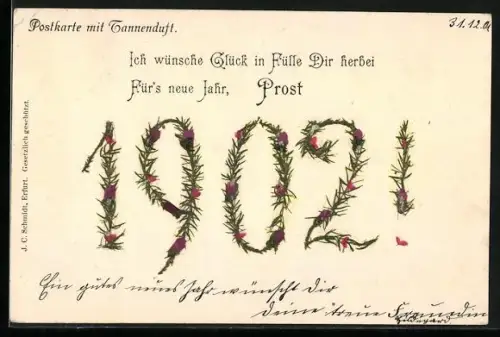 Postkarte mit Tannenduft.
31.12.01
Ich wünsche Glück in Fülle Dir herbei
Für's neue Jahr, Prost
1902!
J. C. Schmidt, Erfurt. Gesetzlich geschützt.
Ein gutes neues Jahr wünscht Dir
deine treue Freundin
Hildegard